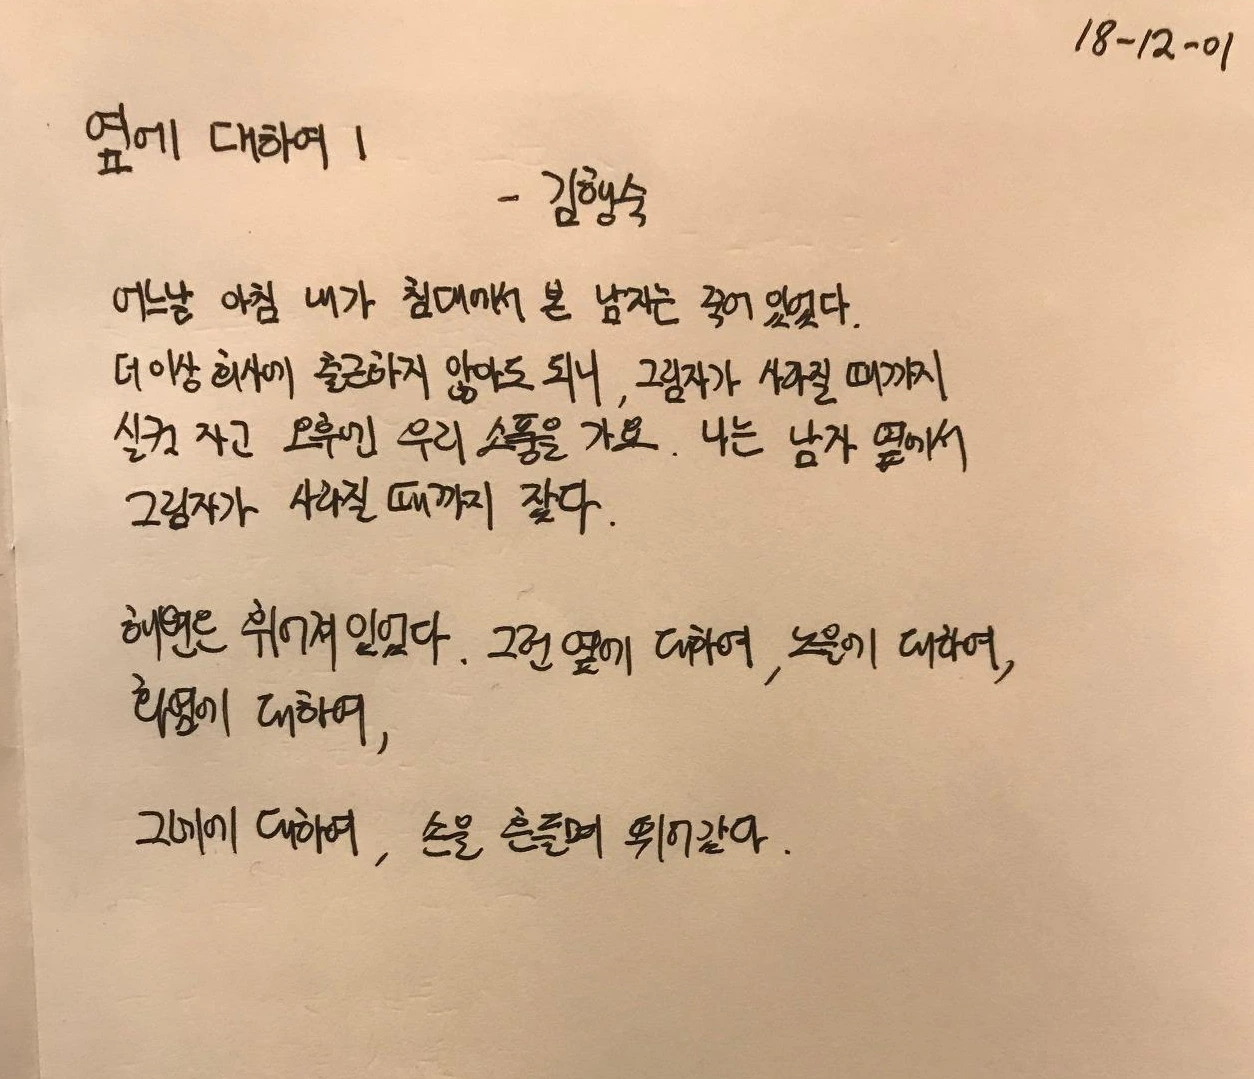 18-12-01
옆에 대하여 1
- 김행숙
어느날 아침 내가 침대에서 본 남자는 죽어 있었다.
더 이상 회사에 출근하지 않아도 되니, 그림자가 사라질 때까지
실컷 자고 오후엔 우리 소풍을 가요. 나는 남자 옆에서
그림자가 사라질 때까지 잤다.
해변은 휘어져 있었다. 그런 옆에 대하여, 노을에 대하여,
화염에 대하여,
그네에 대하여, 손을 흔들며 뛰어갔다.